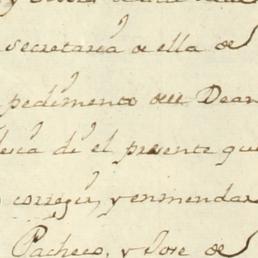 secretaría de ella de
pedimento del Dean
el presente que
corregir, y enmendar
Pacheco, y Jose de